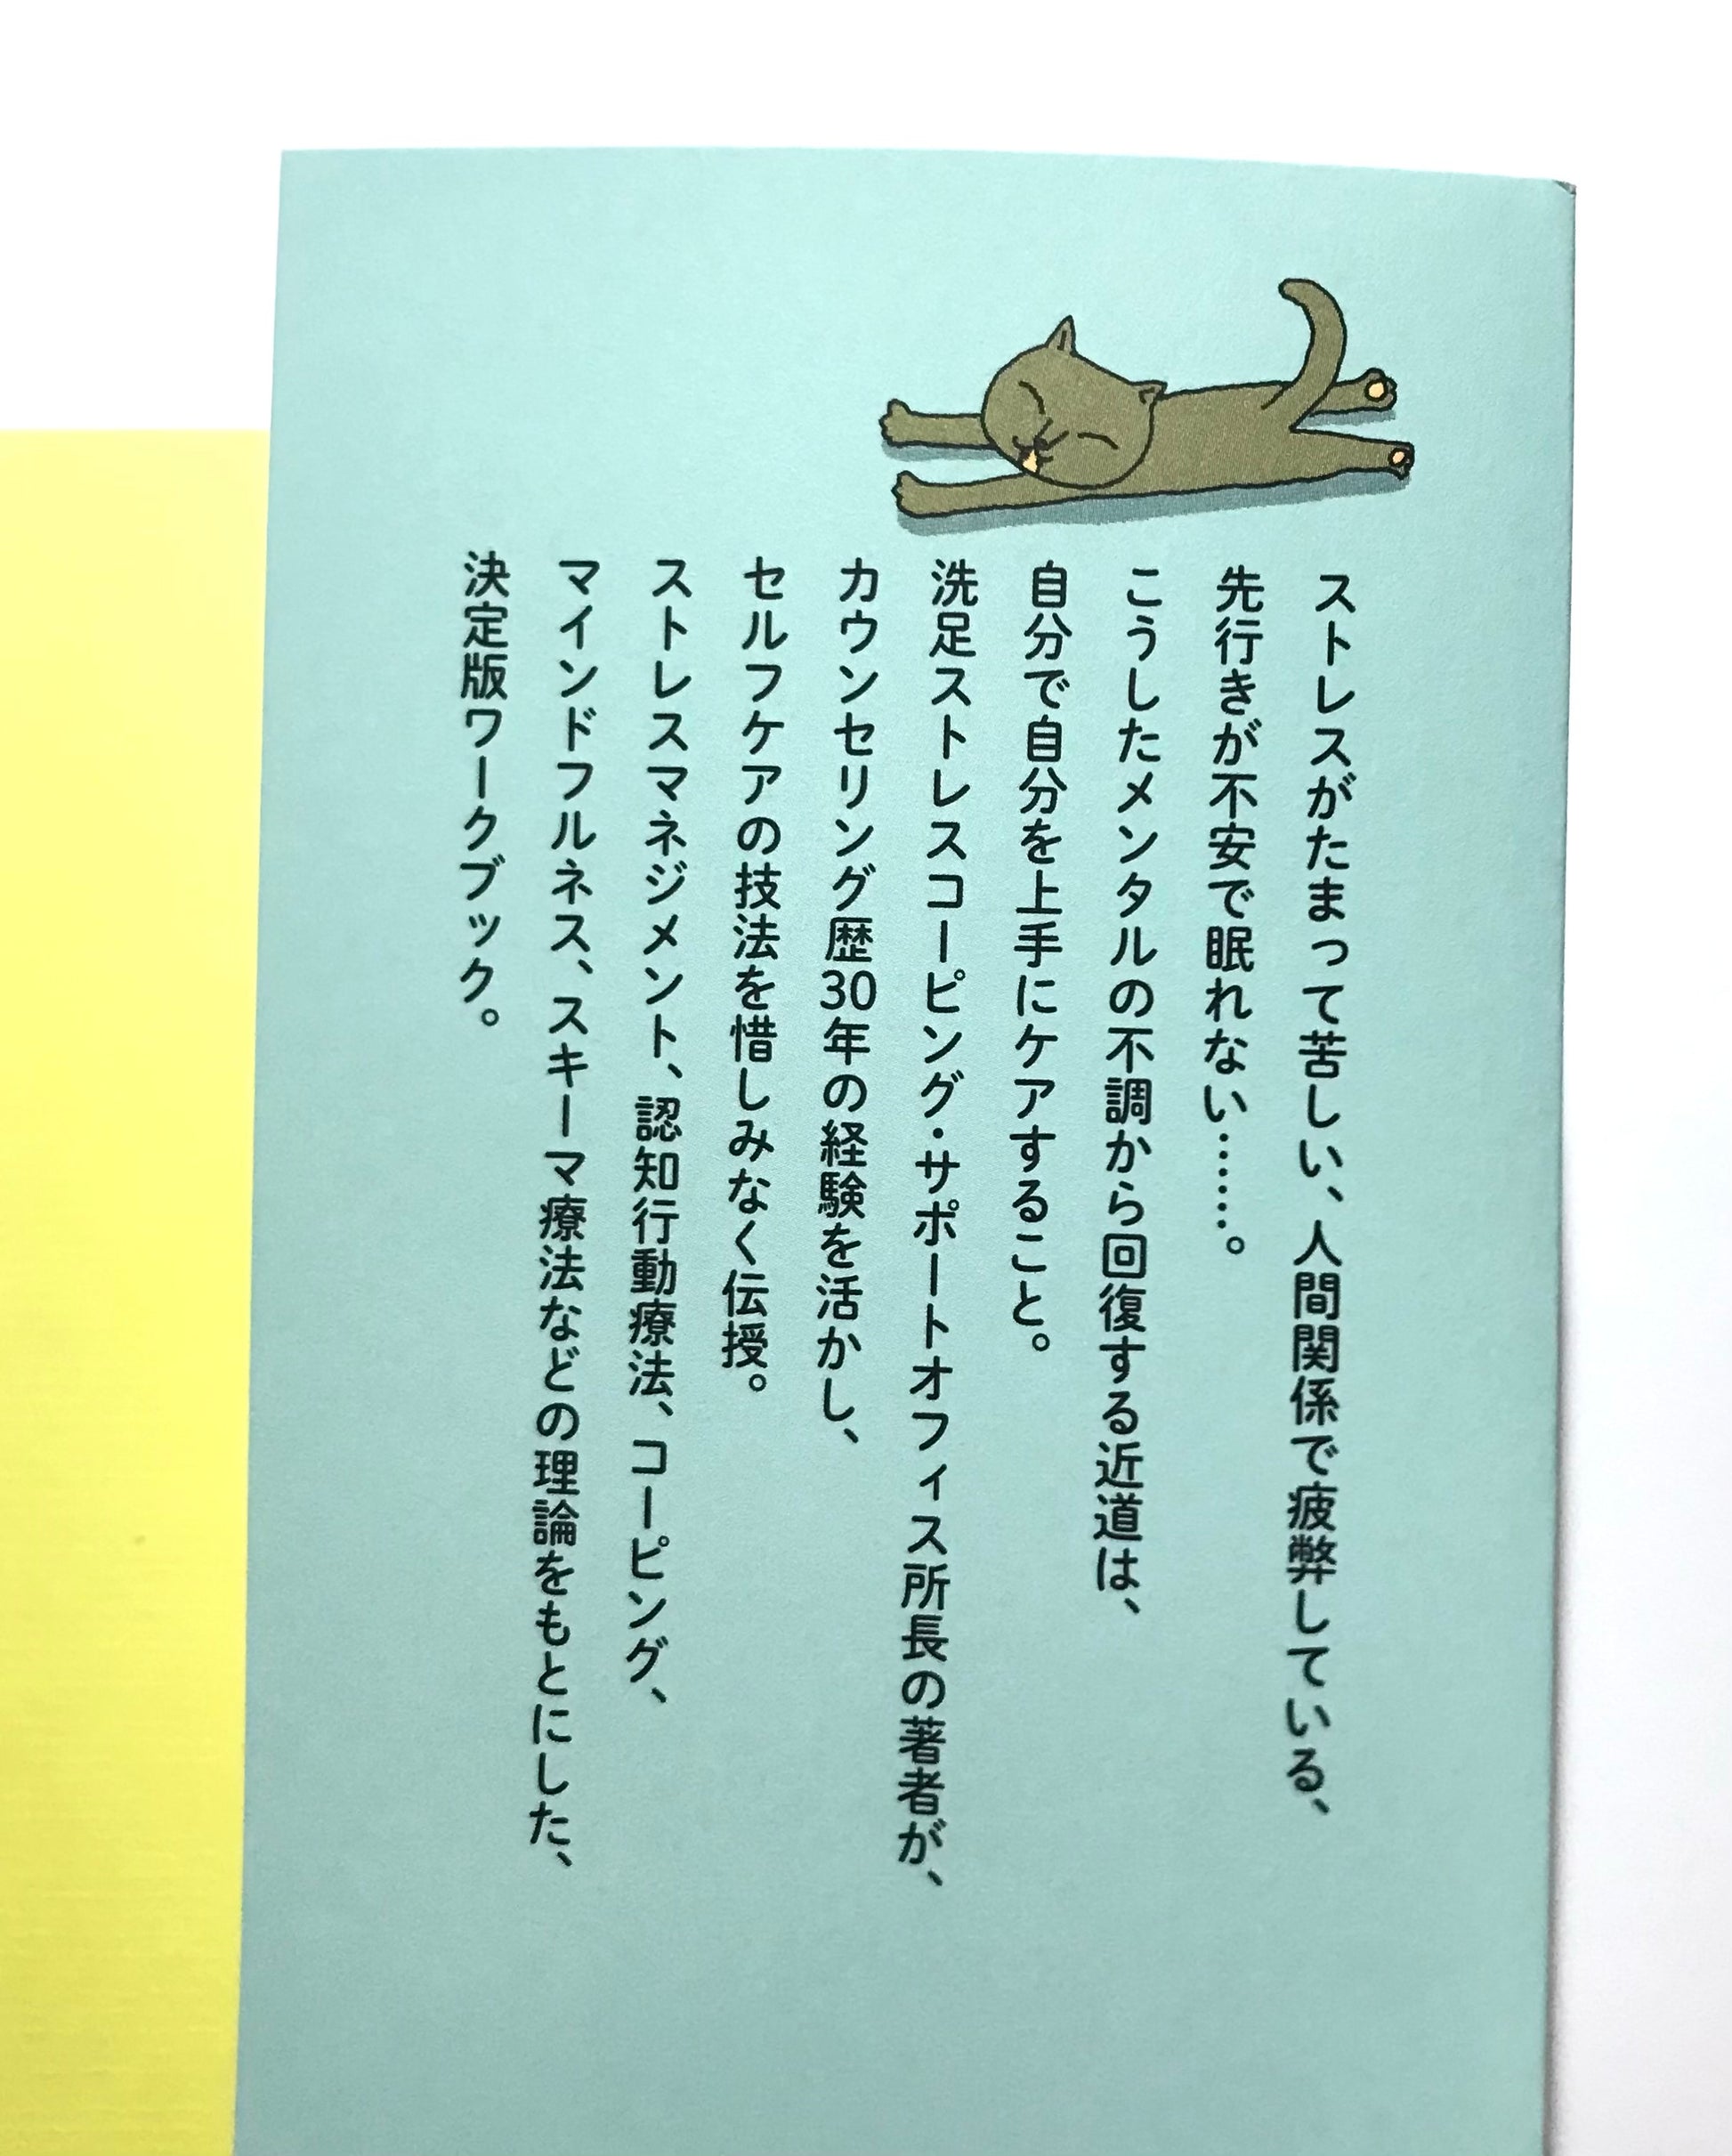 ストレスがたまって苦しい、人間関係で疲弊している、
先行きが不安で眠れない……。
こうしたメンタルの不調から回復する近道は、
自分で自分を上手にケアすること。
洗足ストレスコーピング・サポートオフィス所長の著者が、
カウンセリング歴30年の経験を活かし、
セルフケアの技法を惜しみなく伝授。
ストレスマネジメント、認知行動療法、コーピング、
マインドフルネス、スキーマ療法などの理論をもとにした、
決定版ワークブック。